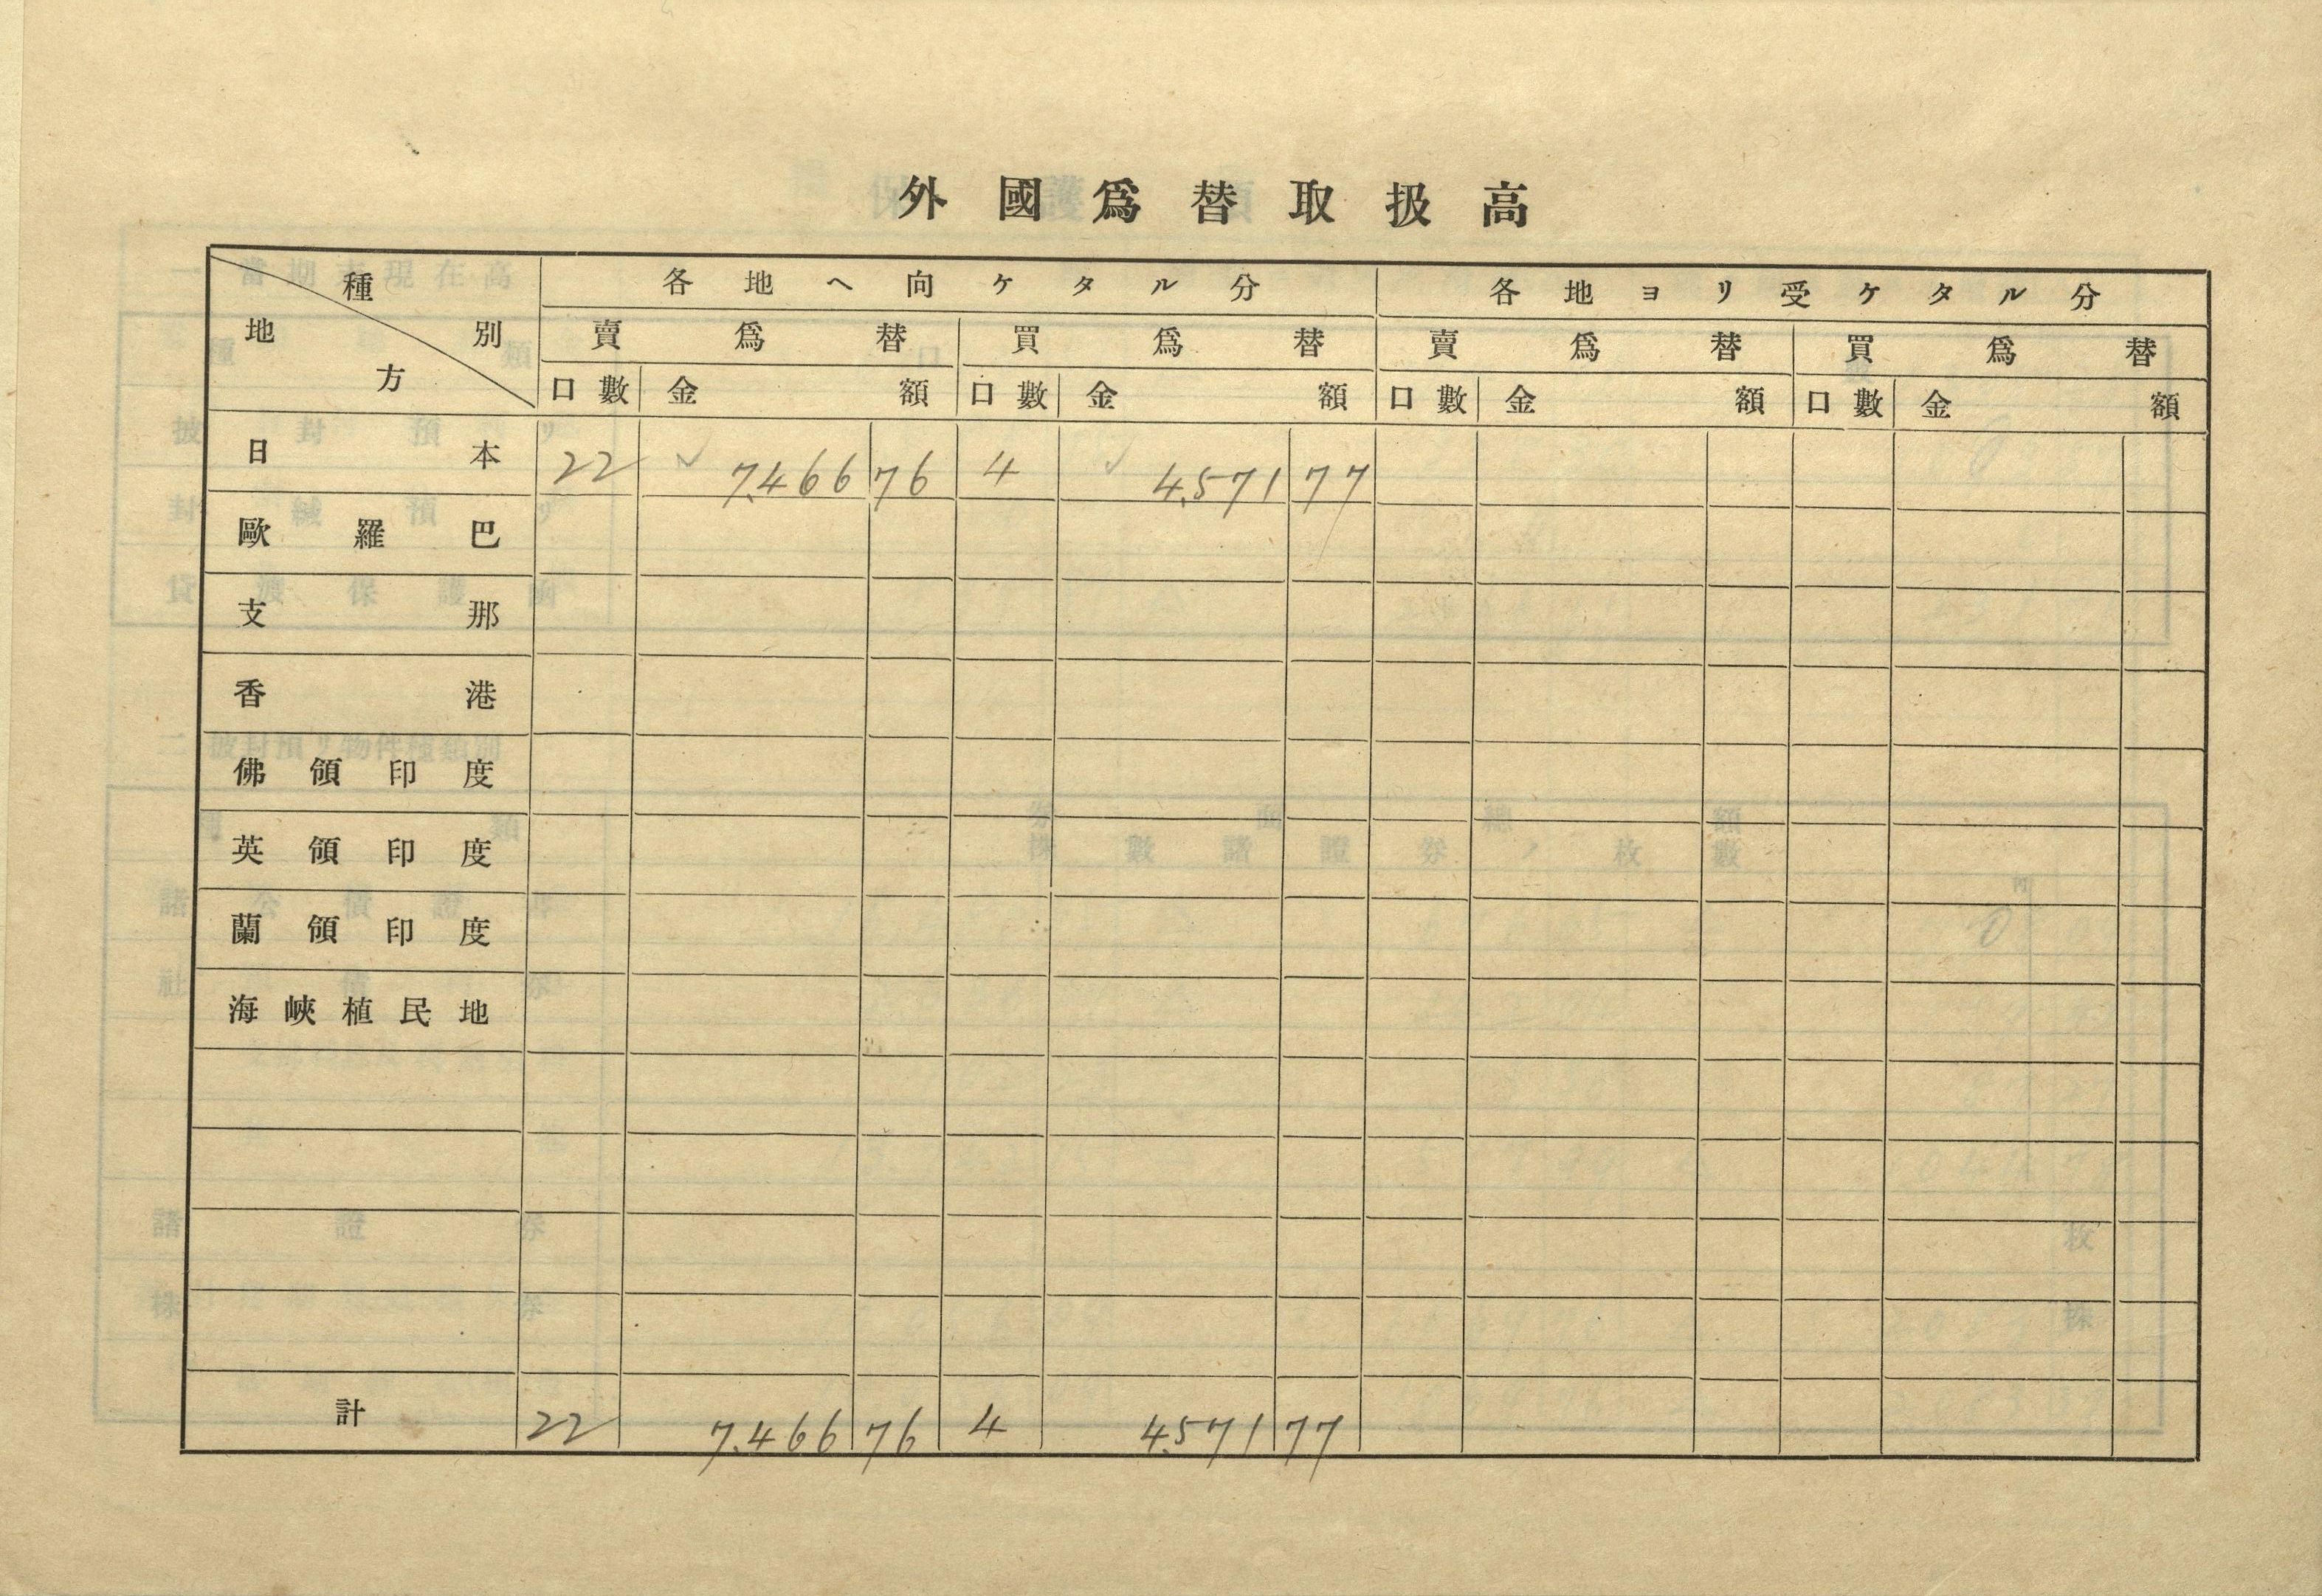 外國爲替取扱高
種別 地方 各地ヘ向ケタル分 各地ヨリ受ケタル分
賣爲替 買爲替 賣爲替 買爲替
口數 金額 口數 金額 口數 金額 口數 金額
日本 22 7,466 76 4 4,571 77
歐羅巴
支那
香港
佛領印度
英領印度
蘭領印度
海峽植民地
計 22 7,466 76 4 4,571 77